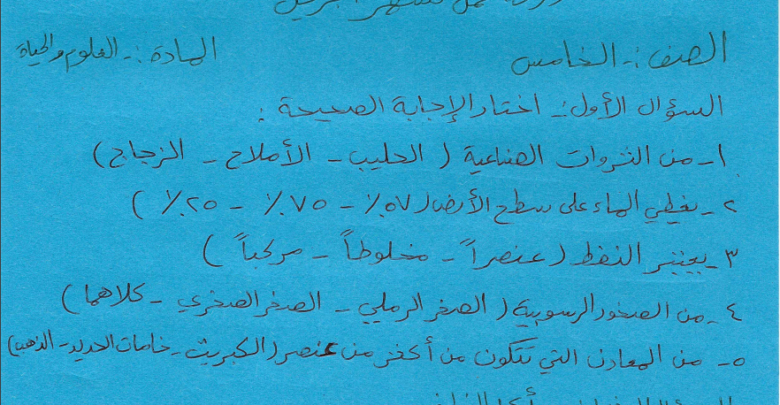 ورقة عمل لشهر
الصف :- الخامس المادة :- العلوم والحياة
السؤال الأول :- اختار الإجابة الصحيحة :
١- من الثروات الصناعية ( الحليب - الأملاح - الزجاج )
٢- يغطي الماء على سطح الأرض ( ٥٧٪ - ٧٥٪ - ٢٥٪ )
٣- يعتبر النفط ( عنصراً - مخلوطاً - مركباً )
٤- من الصخور الرسوبية ( الصخر الرملي - الصخر الصخري - كلاهما )
٥- من المعادن التي تتكون من أكثر من عنصر ( الكبريت - خامات الحديد - الذهب )